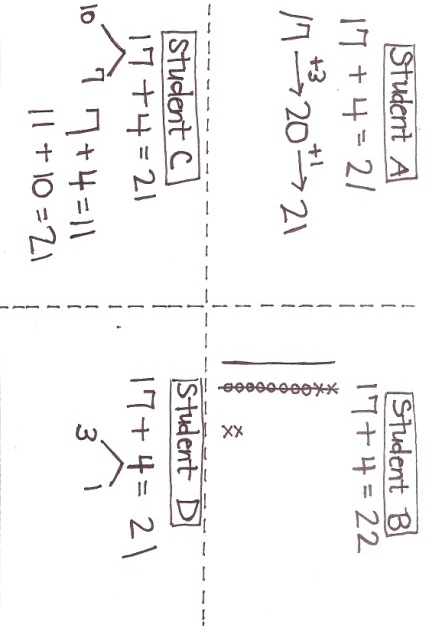 Student A
17 + 4 = 21
+3 +1
17 → 20 → 21
Student B
17 + 4 = 22
Student C
17 + 4 = 21
10 7 7 + 4 = 11
11 + 10 = 21
Student D
17 + 4 = 21
3 1